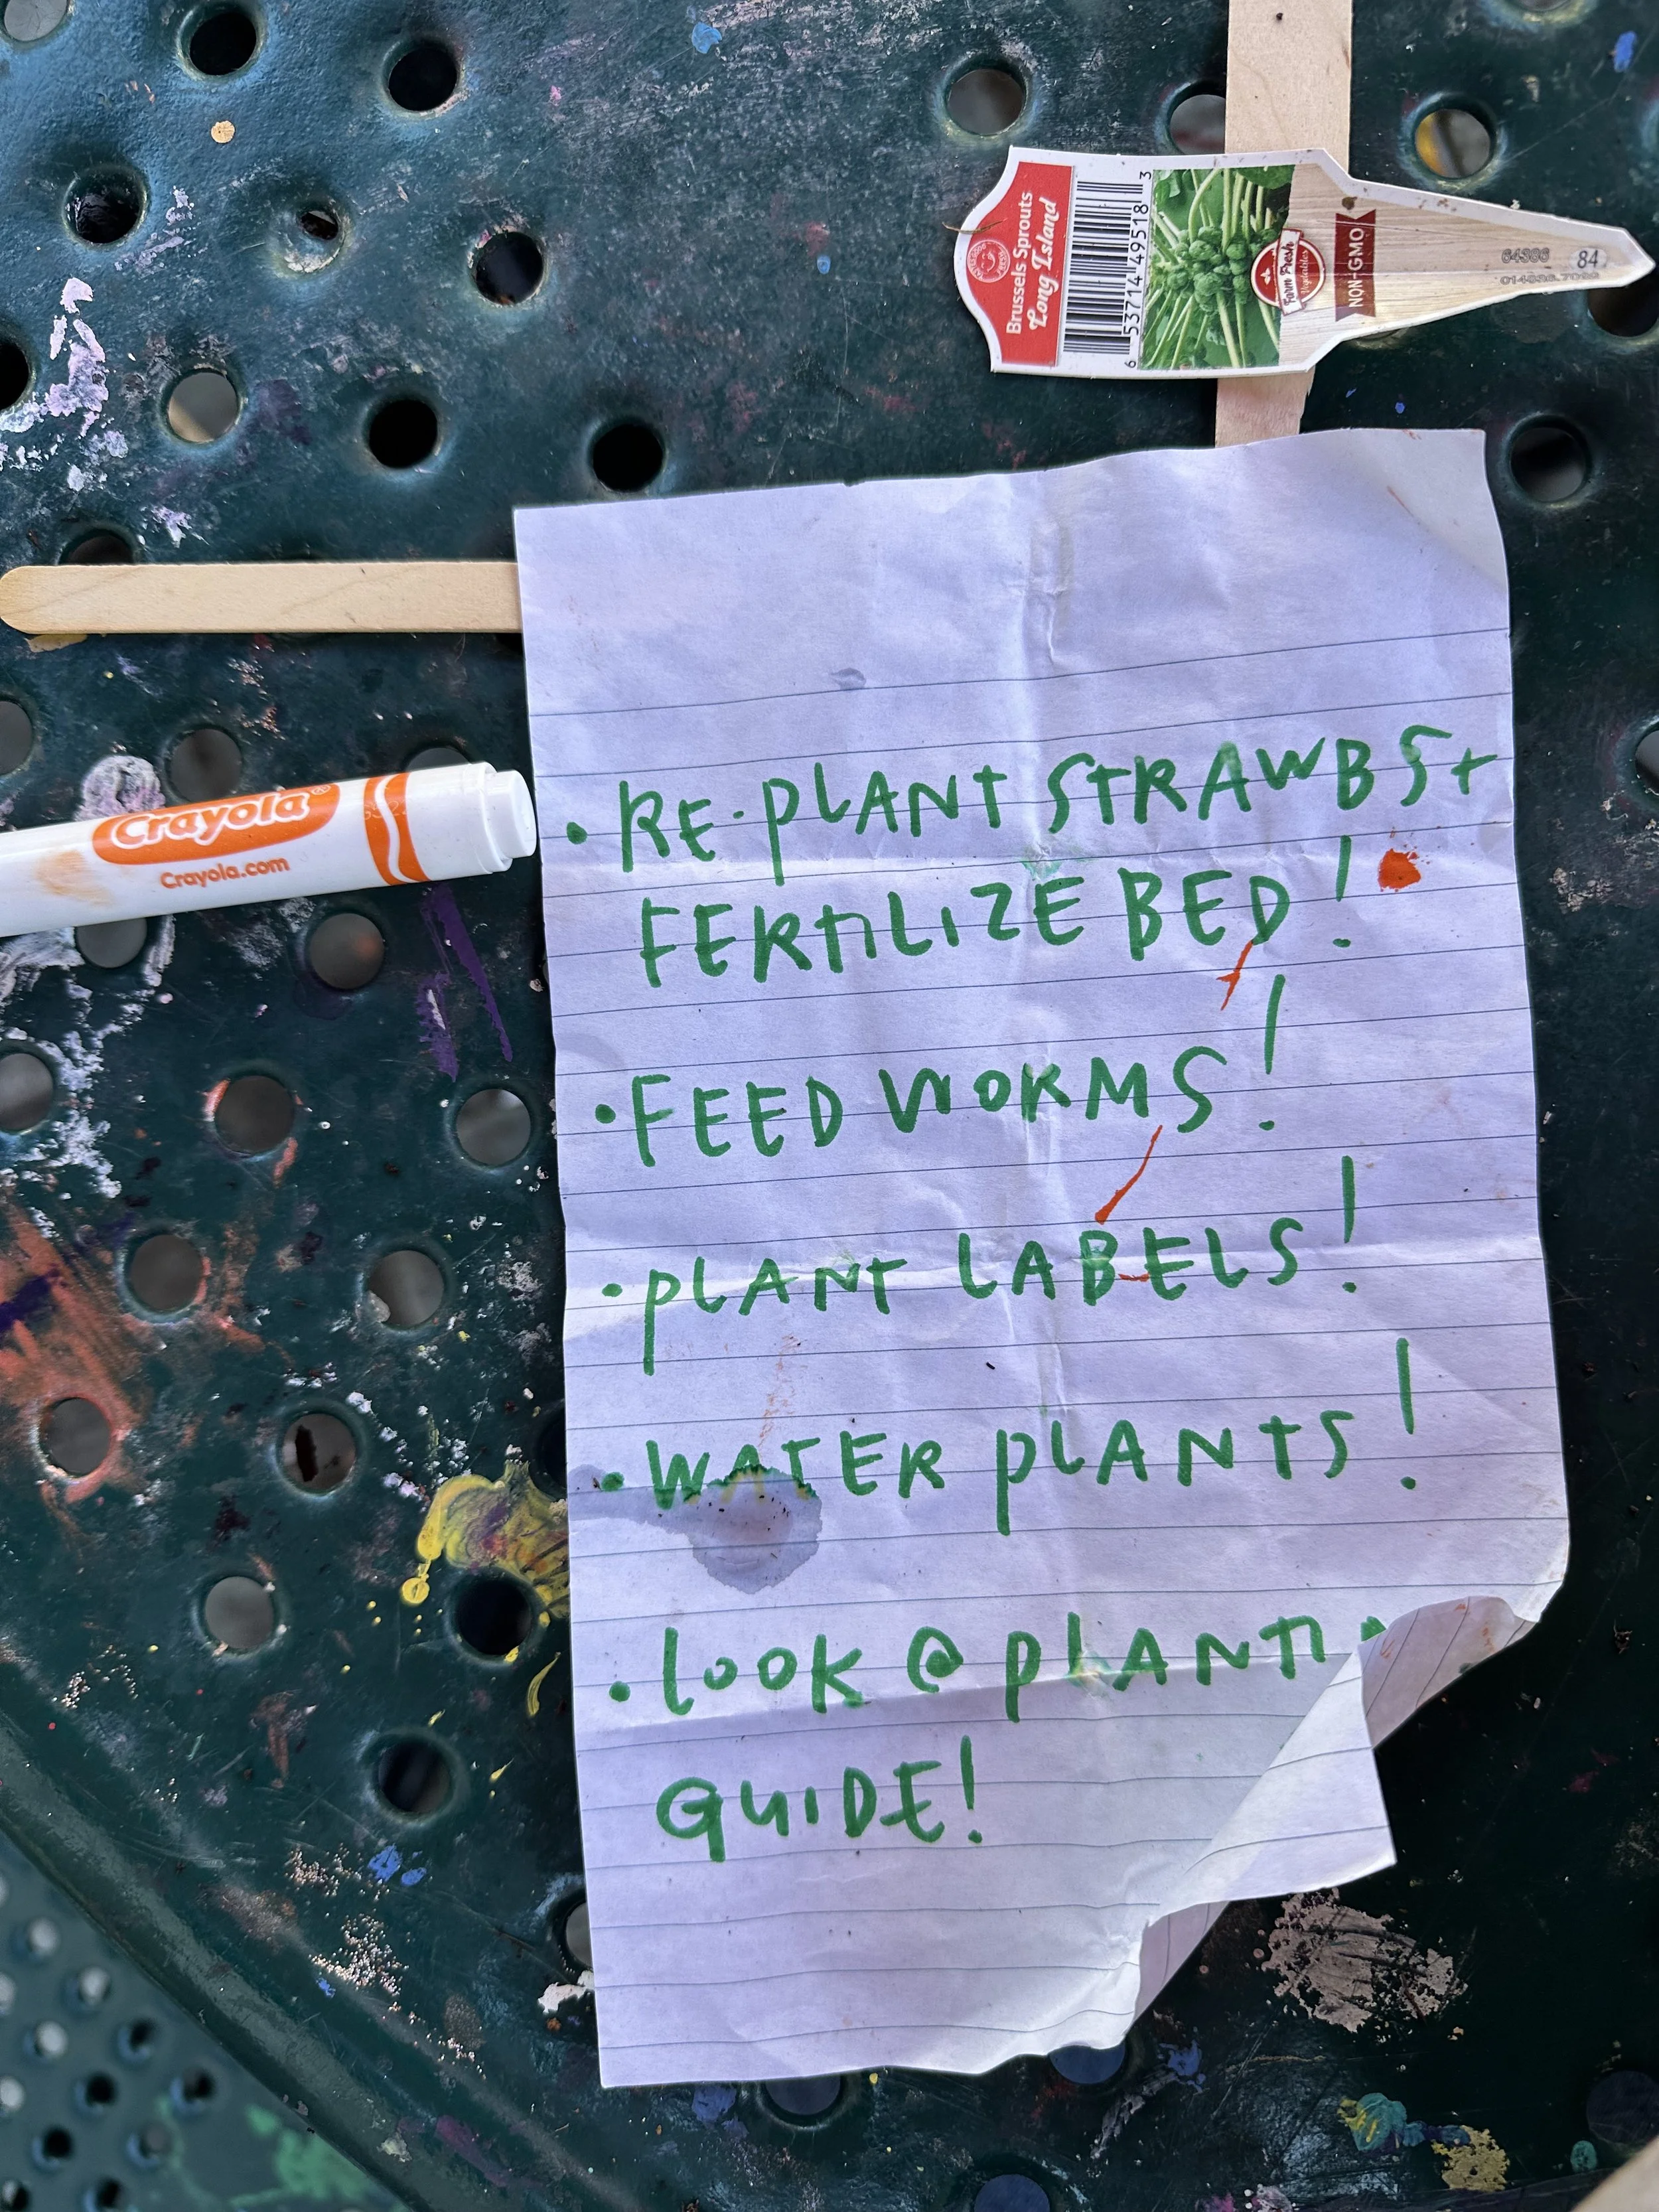 Brussels Sprouts
Long Island
6 53714 49518 3
Farm Fresh
Vegetables
NON-GMO
84
Crayola®
Crayola.com
• RE-PLANT STRAWBS +
FERTILIZE BED!
• FEED WORMS!
• PLANT LABELS!
• WATER PLANTS!
• LOOK @ PLANTI
GUIDE!